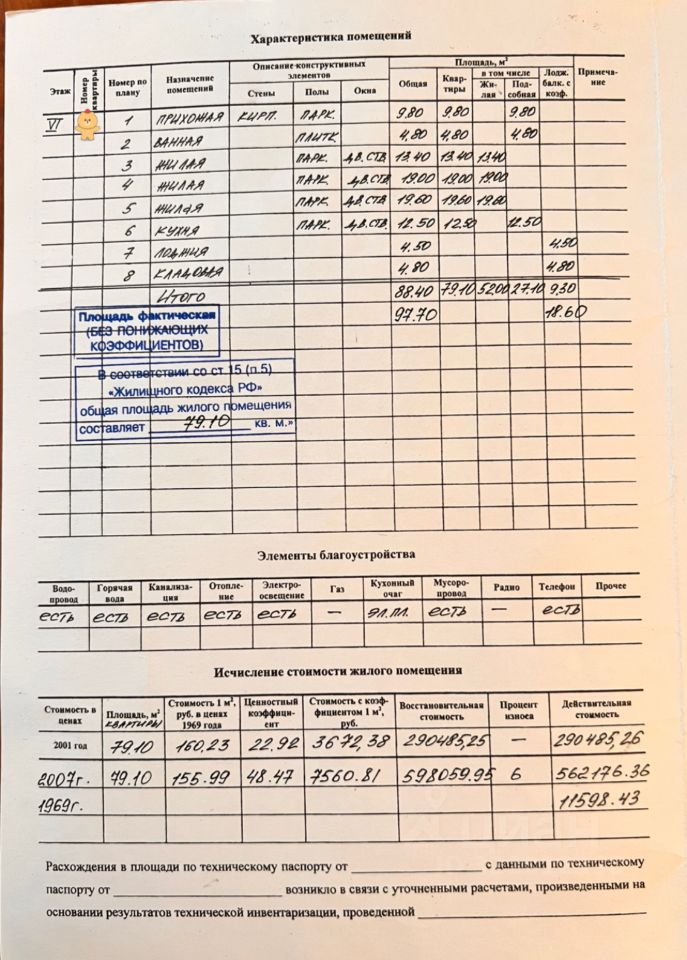 Характеристика помещений
Этаж | Номер квартиры | Номер по плану | Назначение помещений | Описание конструктивных элементов | Площадь, м² | Примечание
Стены | Полы | Окна | Общая | Квартиры | в том числе | Лодж. балк. с коэф.
Жилая | Подсобная
VI | 1 | ПРИХОЖАЯ | КИРП. | ПАРК. | 9.80 | 9.80 | 9.80
2 | ВАННАЯ | ПЛИТК. | 4,80 | 4,80 | 4.80
3 | ЖИЛАЯ | ПАРК. | ДВ.СТВ. | 13.40 | 13.40 | 13.40
4 | ЖИЛАЯ | ПАРК. | ДВ.СТВ. | 19.00 | 19.00 | 19.00
5 | ЖИЛАЯ | ПАРК. | ДВ.СТВ. | 19.60 | 19.60 | 19.60
6 | КУХНЯ | ПАРК. | ДВ.СТВ. | 12.50 | 12.50 | 12.50
7 | ЛОДЖИЯ | 4.50 | 4.50
8 | КЛАДОВАЯ | 4.80 | 4.80
ИТОГО | 88.40 | 79.10 | 52.00 | 27.10 | 9.30
97.70 | 18.60
Площадь фактическая
(БЕЗ ПОНИЖАЮЩИХ
КОЭФФИЦИЕНТОВ)
В соответствии со ст 15 (п.5)
«Жилищного кодекса РФ»
общая площадь жилого помещения
составляет 79.10 кв. м.»
Элементы благоустройства
Водопровод | Горячая вода | Канализация | Отопление | Электроосвещение | Газ | Кухонный очаг | Мусоропровод | Радио | Телефон | Прочее
есть | есть | есть | есть | есть | — | эл.пл. | есть | — | есть
Исчисление стоимости жилого помещения
Стоимость в ценах | Площадь, м² КВАРТИРЫ | Стоимость 1 м², руб. в ценах 1969 года | Ценностный коэффициент | Стоимость с коэффициентом 1 м², руб. | Восстановительная стоимость | Процент износа | Действительная стоимость
2001 год | 79.10 | 160,23 | 22,92 | 3672,38 | 290485,25 | — | 290485,26
2007г. | 79.10 | 155.99 | 48.47 | 7560.81 | 598059.95 | 6 | 562176.36
1969г. | 11598.43
Расхождения в площади по техническому паспорту от ____ с данными по техническому
паспорту от ____ возникло в связи с уточненными расчетами, произведенными на
основании результатов технической инвентаризации, проведенной ____